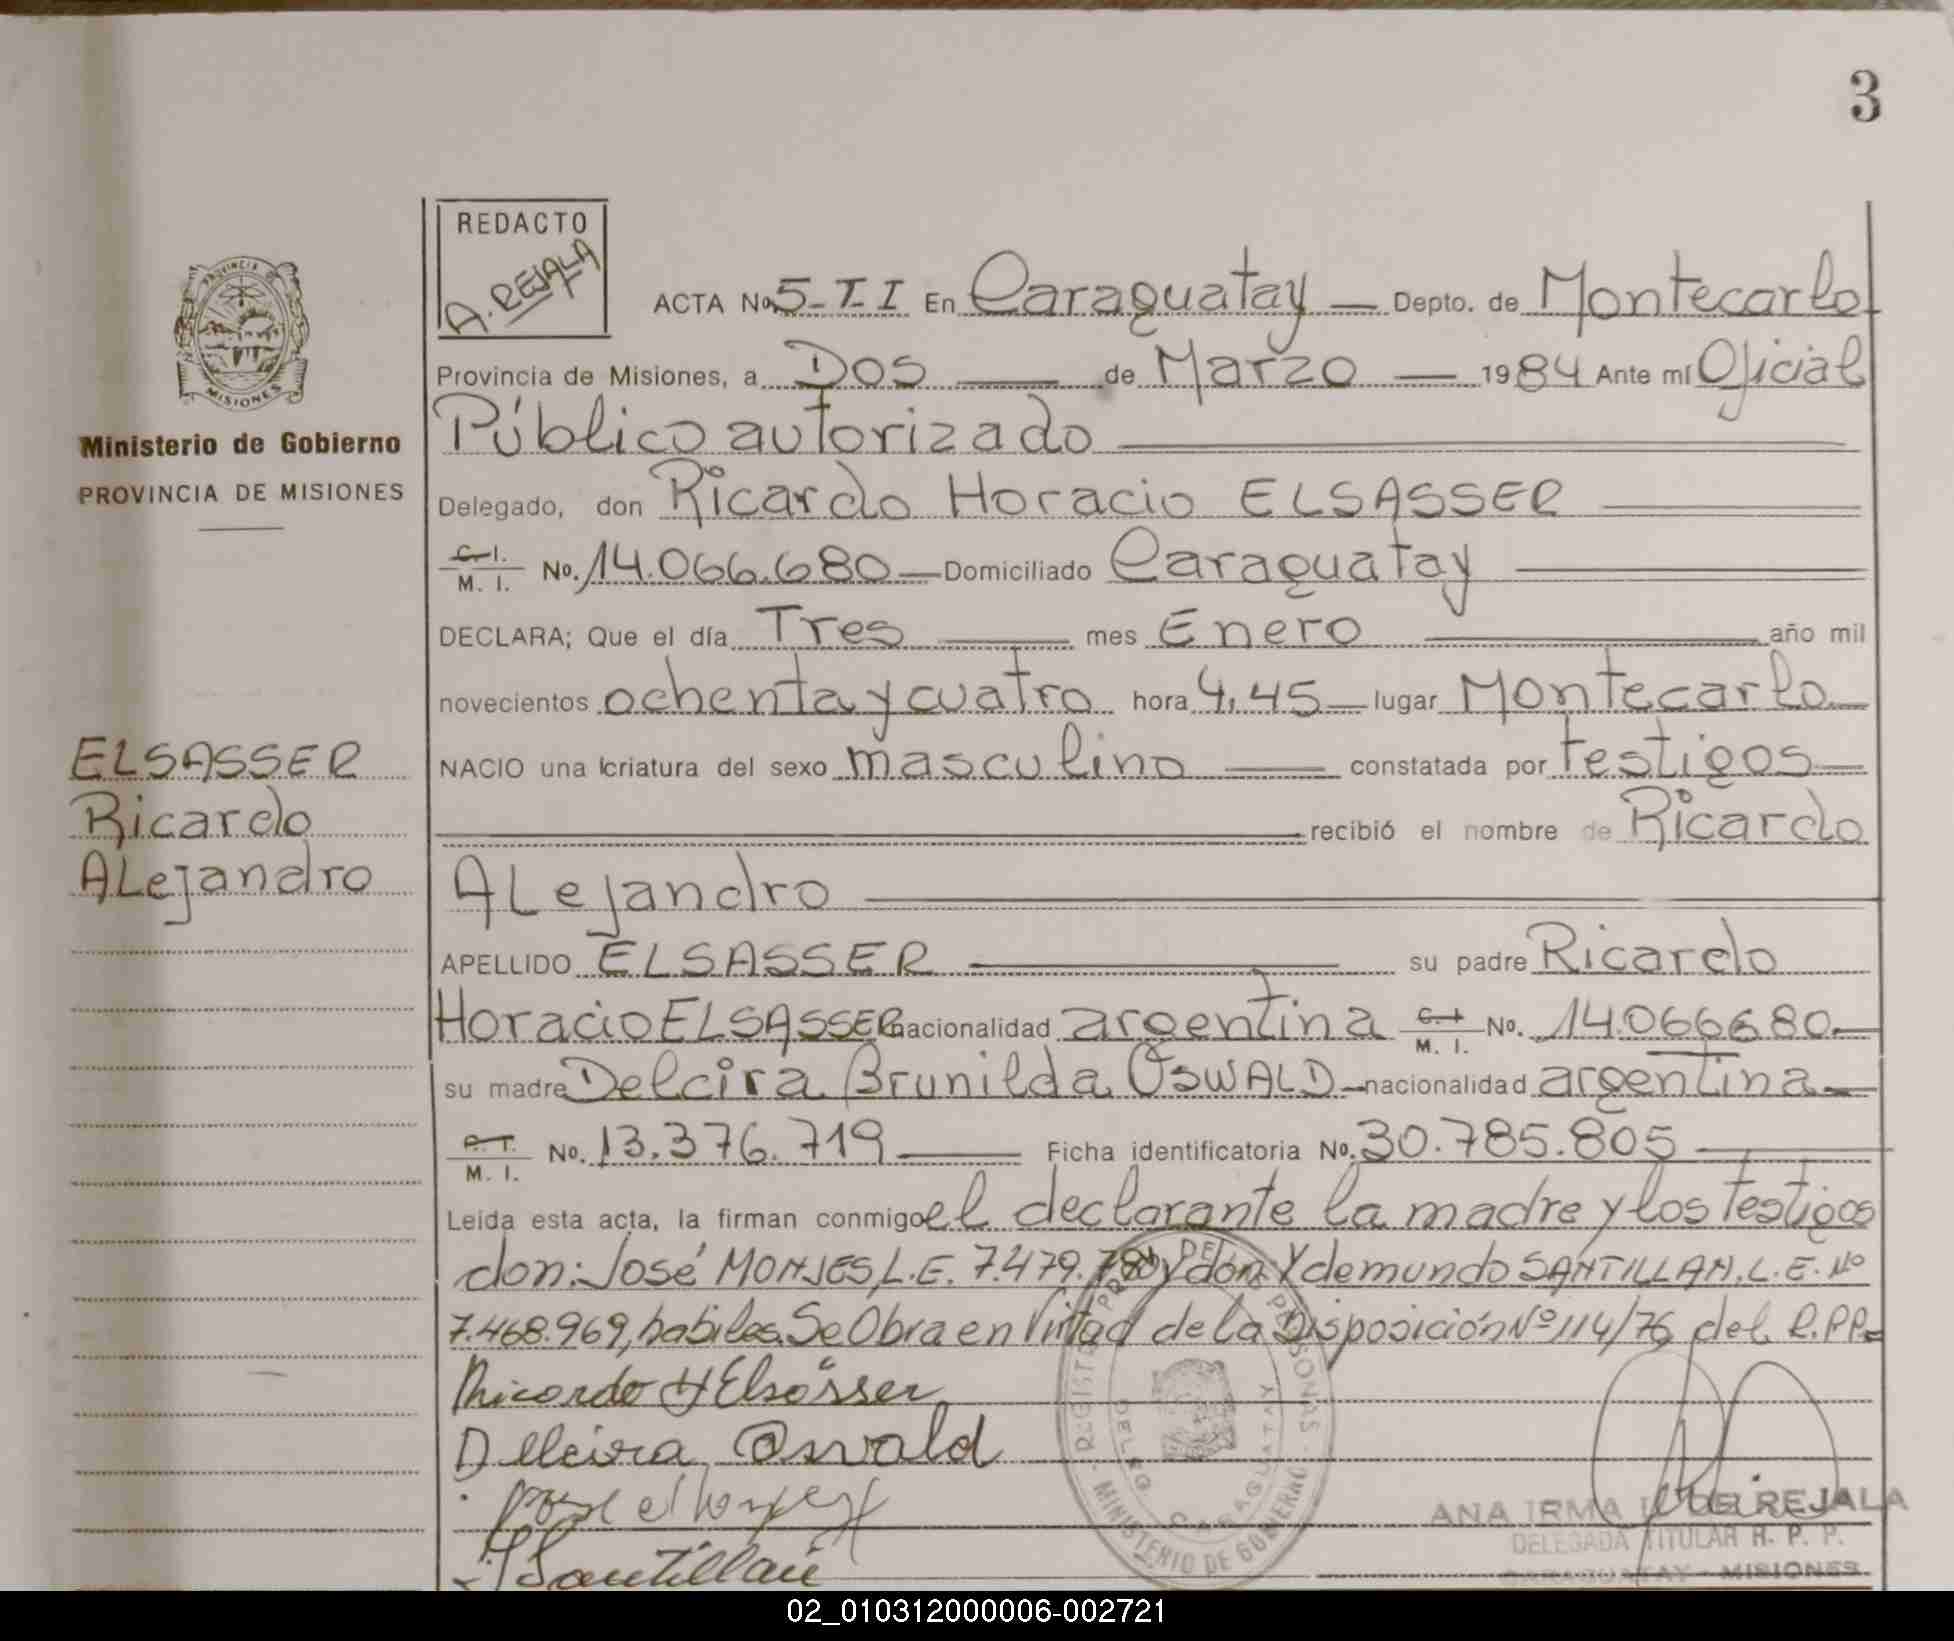 3
REDACTO
A. REJALA
PROVINCIA DE
MISIONES
Ministerio de Gobierno
PROVINCIA DE MISIONES
ELSASSER
Ricardo
ALejandro
ACTA No. 5-T-I En Caraguatay — Depto. de Montecarlo
Provincia de Misiones, a Dos — de Marzo — 1984 Ante mí Oficial
Público autorizado
Delegado, don Ricardo Horacio ELSASSER
C.I. M. I. No. 14.066.680 — Domiciliado Caraguatay
DECLARA; Que el día Tres — mes Enero — año mil
novecientos ochenta y cuatro hora 4,45 — lugar Montecarlo
NACIO una criatura del sexo masculino — constatada por testigos
recibió el nombre de Ricardo
ALejandro
APELLIDO ELSASSER — su padre Ricardo
Horacio ELSASSER nacionalidad argentina C.I. M. I. No. 14.066680
su madre Delcira Brunilda OSWALD — nacionalidad argentina
C.I. M. I. No. 13.376.719 — Ficha identificatoria No. 30.785.805
Leida esta acta, la firman conmigo el declarante la madre y los testigos
don: José MONJES, L.E. 7.479. y don Ydemundo SANTILLAN, L.E. Nº
7.468.969, habiles. Se Obra en Virtud de la Disposición Nº 114/76 del R.P.P.
Ricardo H Elsässer
Delcira Oswald
Santillan
REGISTRO PROV. DE PERSONAS
DELEG. CARAGUATAY
MINISTERIO DE GOBIERNO
ANA IRMA DE REJALA
DELEGADA TITULAR R. P. P.
CARAGUATAY - MISIONES
02_010312000006-002721